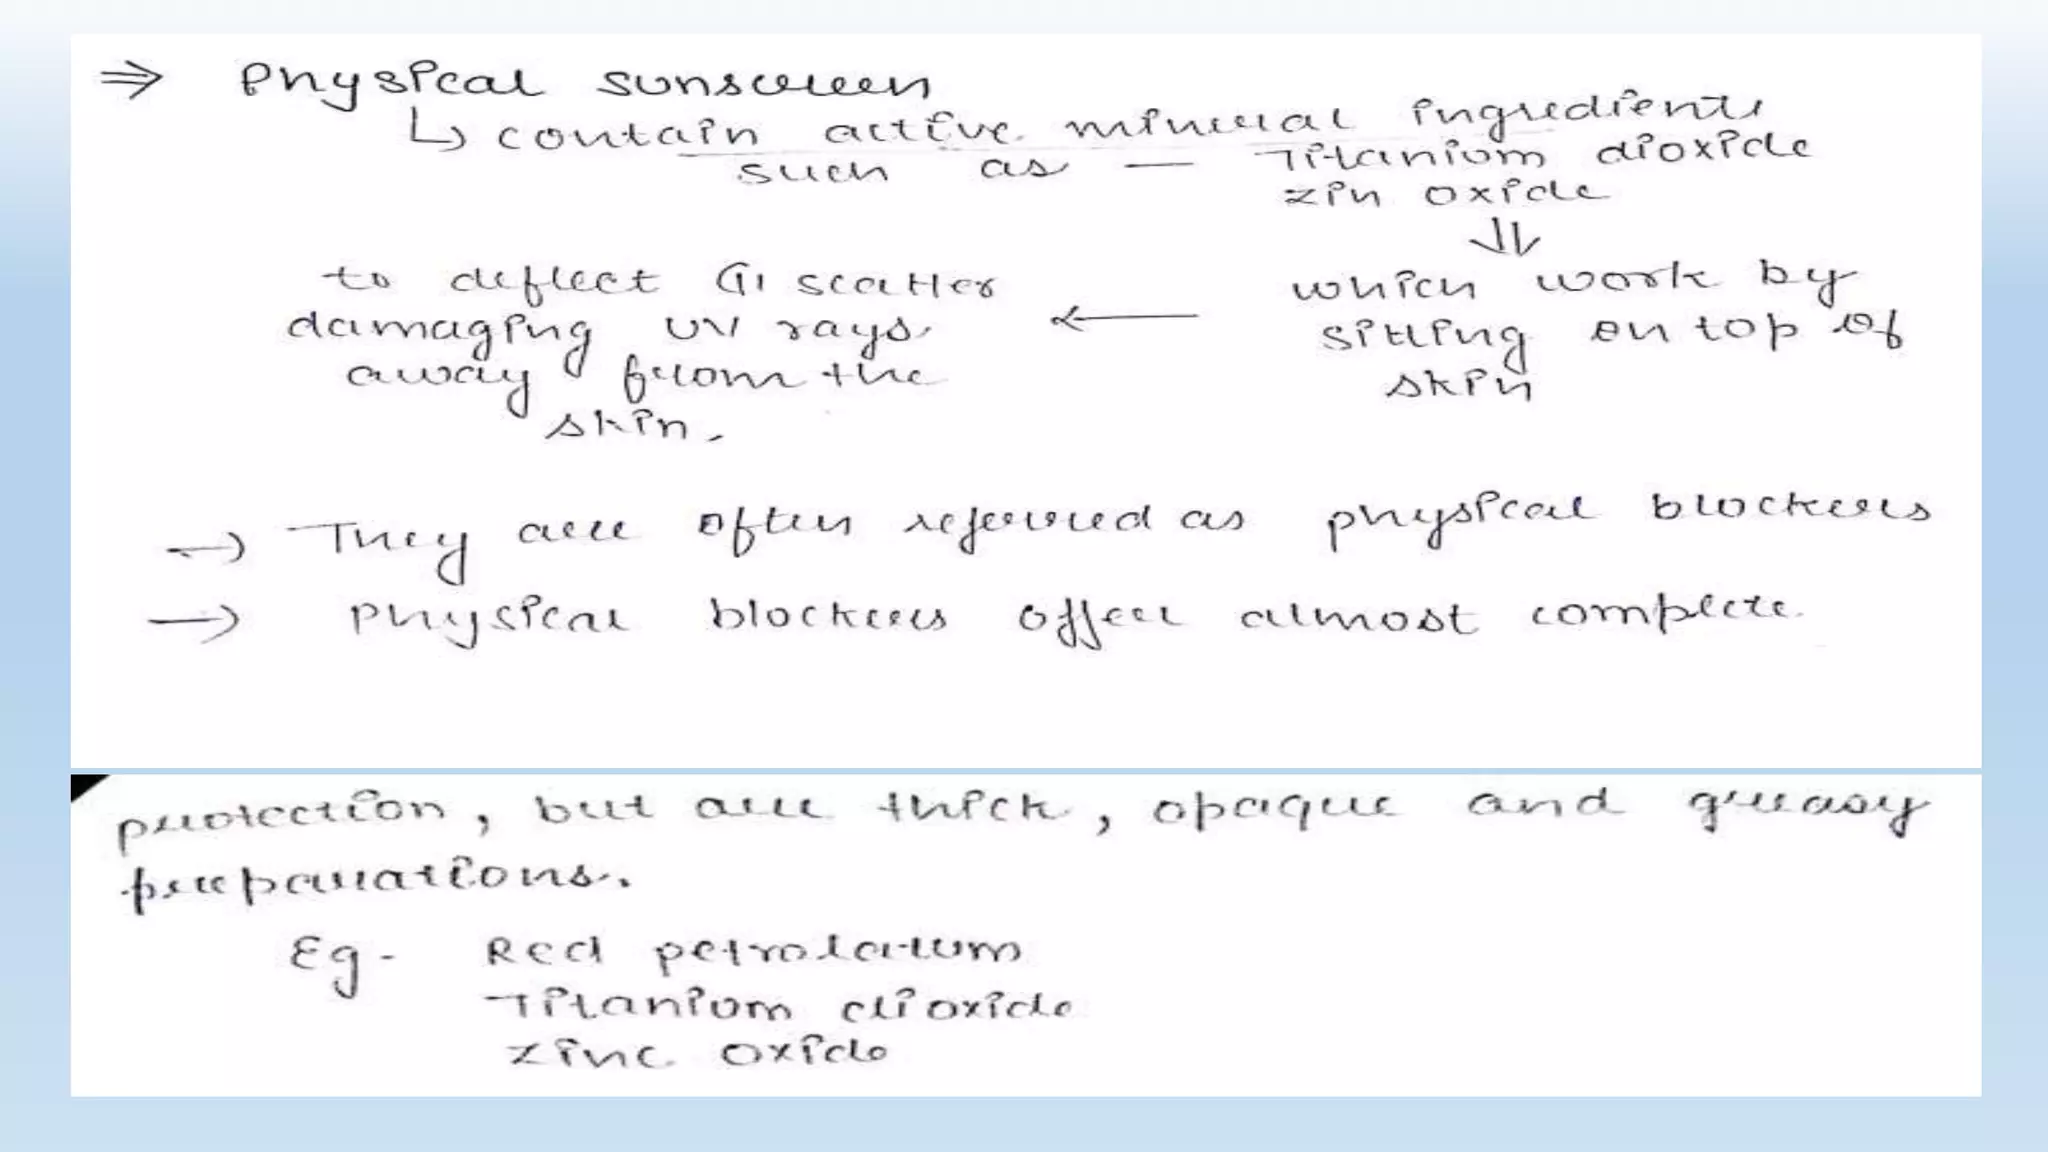 ⇒ Physical sunscreen
↳ contain active mineral ingredients
such as — Titanium dioxide
zin oxide
⇓
which work by
sitting on top of
skin
←
to deflect & scatter
damaging UV rays
away from the
skin.
→ They are often referred as physical blockers
→ Physical blockers offer almost complete
protection, but are thick, opaque and greasy
preparations.
Eg- Red petrolatum
Titanium dioxide
zinc oxide